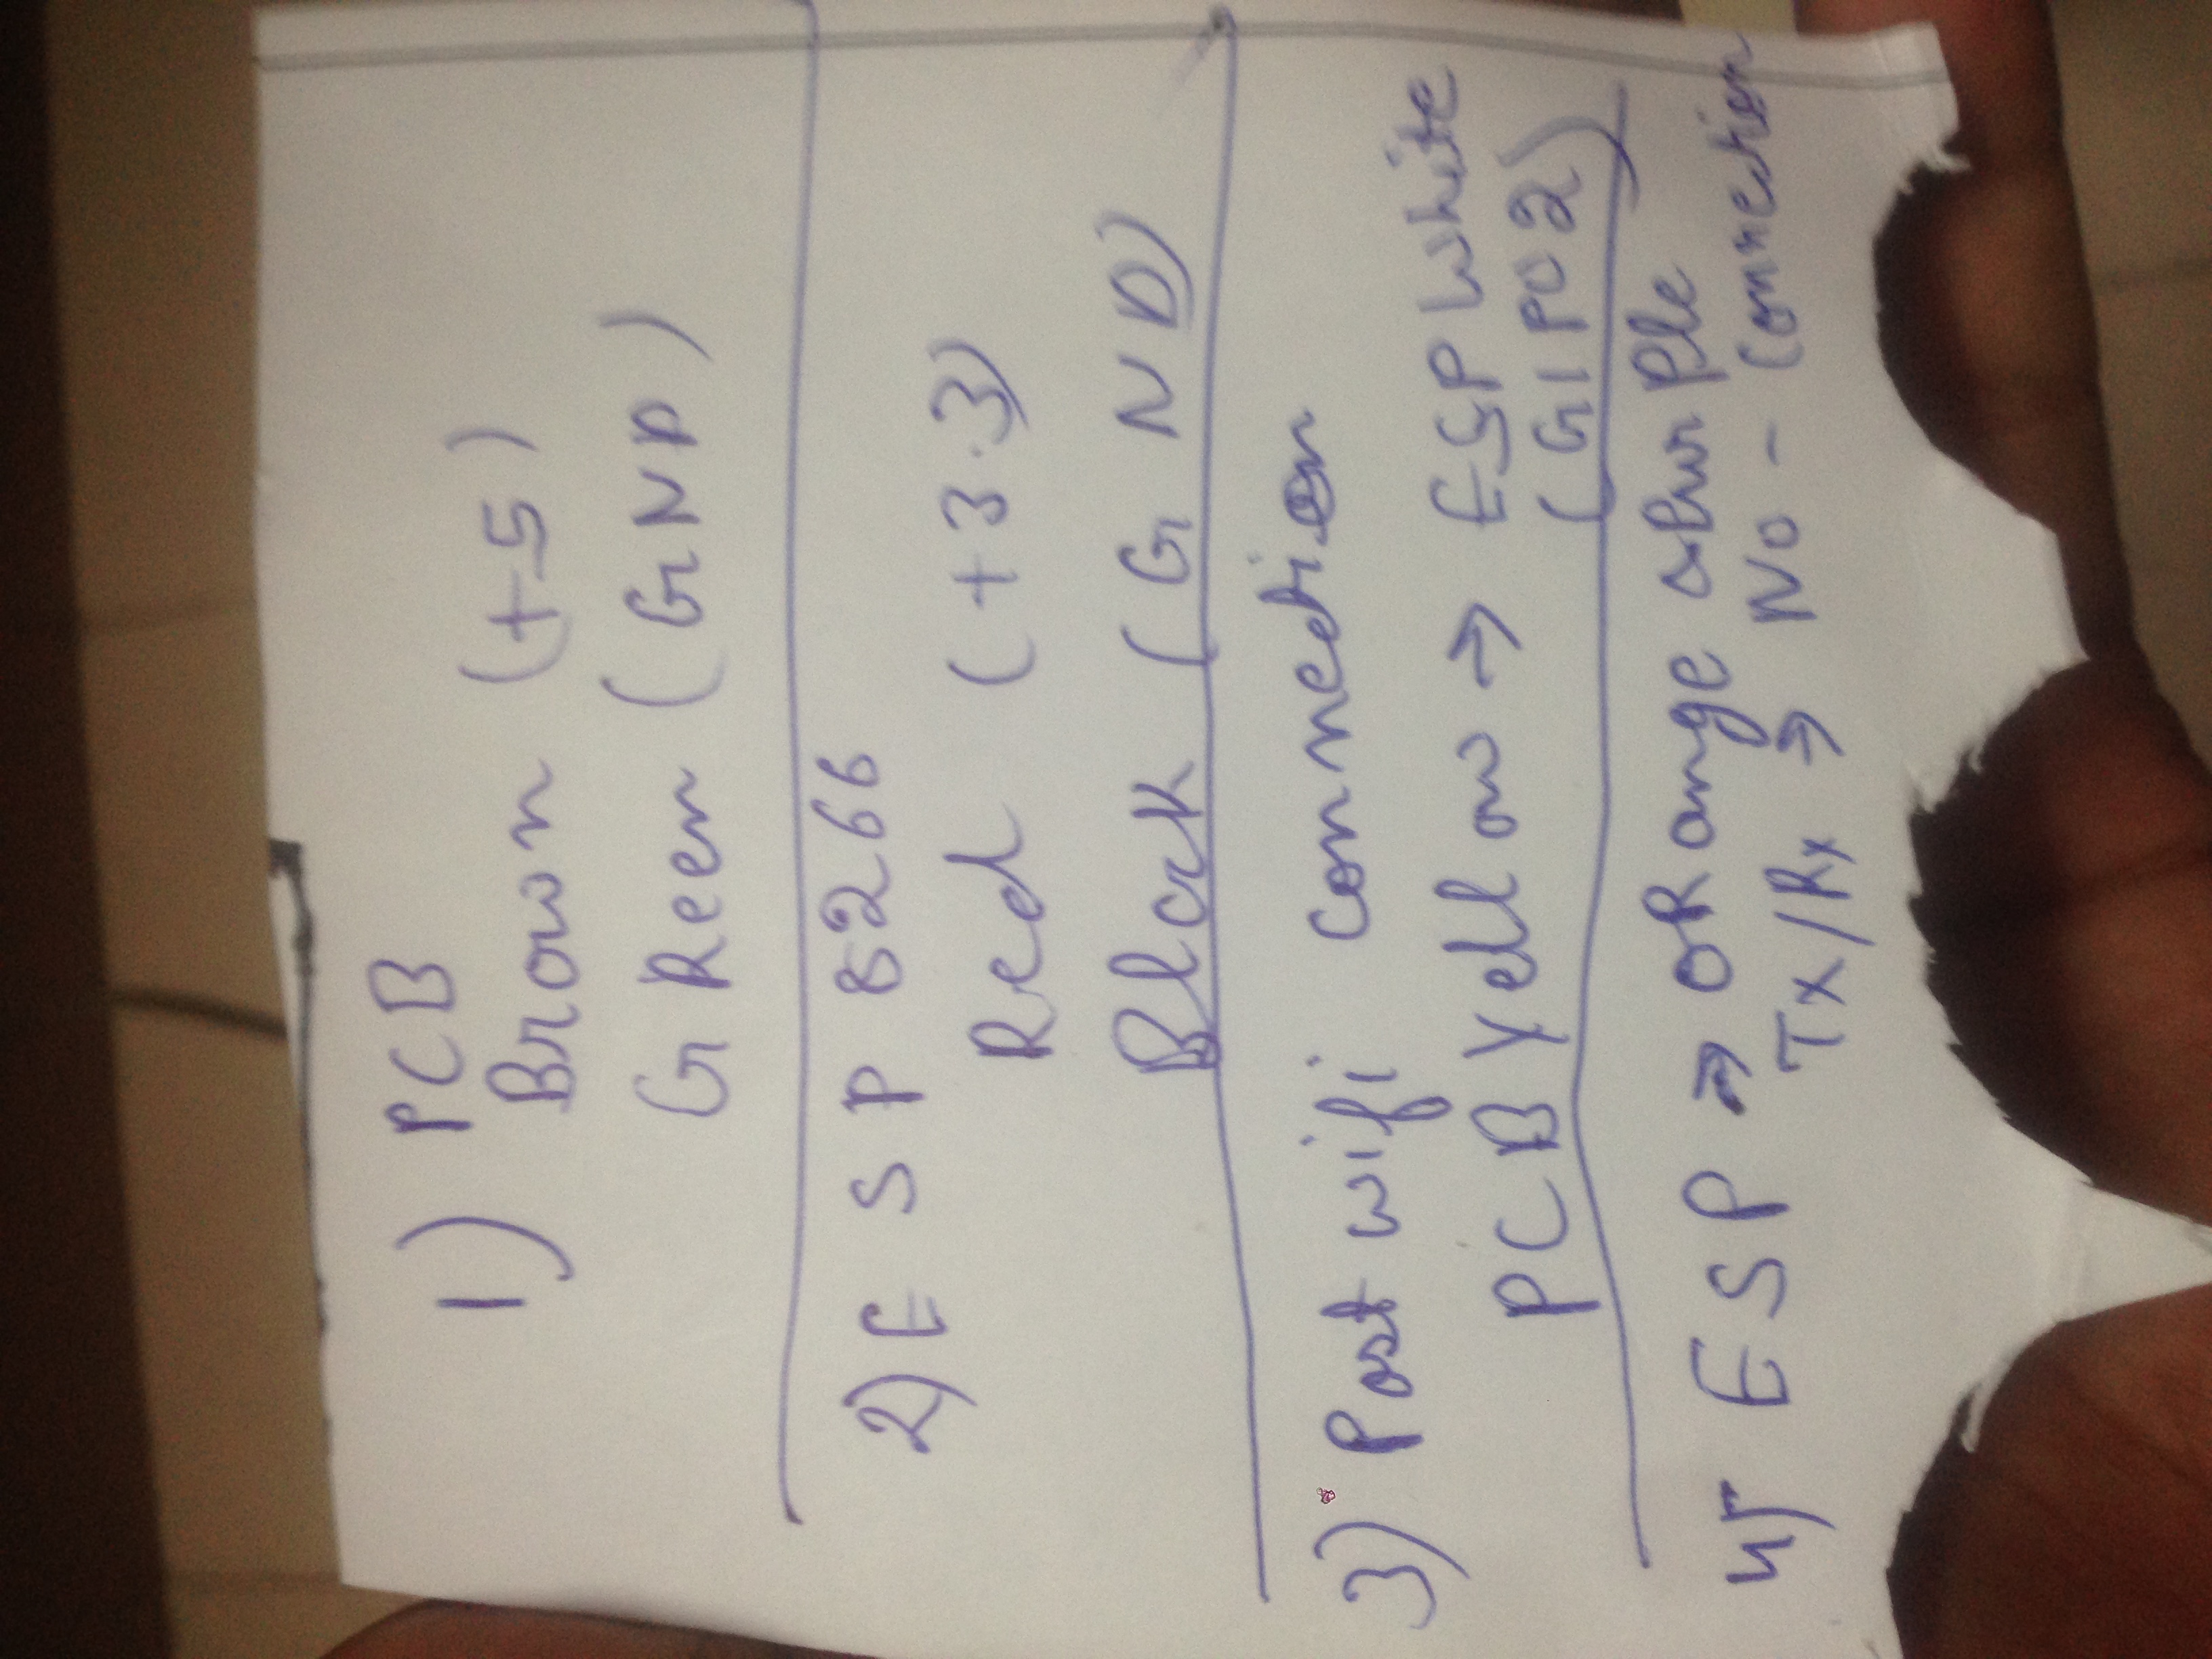 1) PCB
Brown (+5)
GReen (GND)
2) ESP 8266
Red (+3.3)
Black (GND)
3) Post wifi connection
PCB Yellow → ESP White
(GIPO2)
4) ESP → ORange & Purple
Tx/Rx → No - Connection